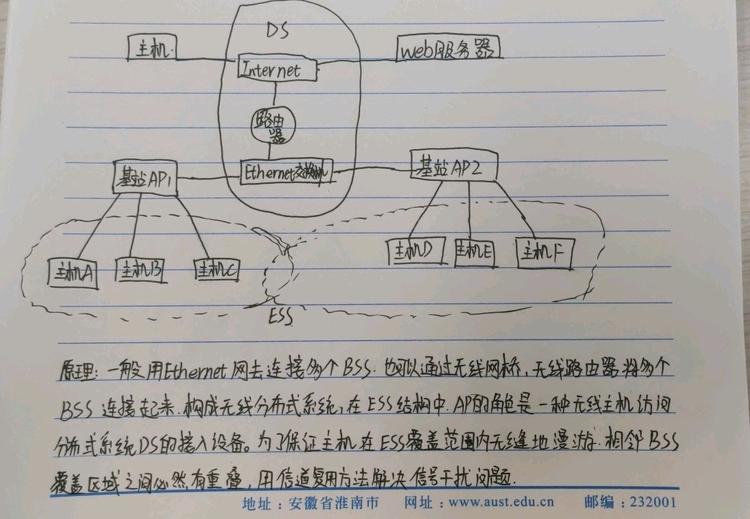 DS
主机
Internet
web服务器
路由
器
基站AP1
Ethernet交换机
基站AP2
主机A
主机B
主机C
主机D
主机E
主机F
ESS
原理:一般用Ethernet网去连接多个BSS.也可以通过无线网桥,无线路由器将多个
BSS连接起来.构成无线分布式系统,在ESS结构中.AP的角色是一种无线主机访问
分布式系统DS的接入设备。为了保证主机在ESS覆盖范围内无缝地漫游.相邻BSS
覆盖区域之间必然有重叠,用信道复用方法解决信号干扰问题.
地址:安徽省淮南市 网址:www.aust.edu.cn 邮编:232001